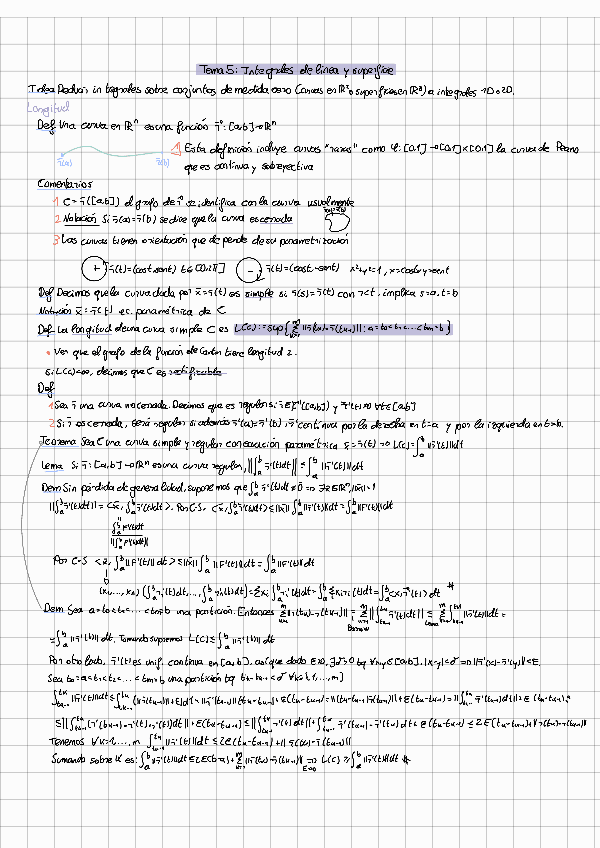 Tema 5: Integrales de línea y superficie
Idea Reducir integrales sobre conjuntos de medida cero (curvas en ℝ² o superficies en ℝ³) a integrales 1D o 2D.
Longitud
Def Una curva en ℝⁿ es una función r̄: [a,b]→ℝⁿ
Esta definición incluye curvas "raras" como φ: [0,1]→[0,1]×[0,1] la curva de Peano
r̄(a) r̄(b)
que es continua y sobreyectiva
Comentarios
1 C = r̄([a,b]) el grafo de r̄ se identifica con la curva usualmente
r̄(a)=r̄(b)
2 Notación Si r̄(a)=r̄(b) se dice que la curva es cerrada
3 Las curvas tienen orientación que depende de su parametrización
+ r̄(t)=(cost,sent) t∈[0,2π] - r̄(t)=(cost,-sent) x²+y²=1, x=cost y=sent
Def Decimos que la curva dada por x̄=r̄(t) es simple si r̄(s)=r̄(t) con s<t, implica s=a, t=b
Notación x̄=r̄(t) ec. paramétrica de C
Def La longitud de una curva simple C es L(C):=sup{∑ ||r̄(tₖ)-r̄(tₖ₋₁)|| : a=t₀<t₁<...<tₘ=b}
• Ver que el grafo de la función de Cantor tiene longitud 2.
Si L(C)<∞, decimos que C es rectificable
Def
1 Sea r̄ una curva no cerrada. Decimos que es regular si r̄∈C¹([a,b]) y r̄'(t)≠0 ∀t∈[a,b]
2 Si r̄ es cerrada, será regular si además r̄'(a)=r̄'(b), r̄' continua por la derecha en t=a y por la izquierda en t=b.
Teorema Sea C una curva simple y regular con ecuación paramétrica x̄=r̄(t) ⇒ L(C)=∫ₐᵇ||r̄'(t)||dt
Lema Si r̄: [a,b]→ℝⁿ es una curva regular, ||∫ₐᵇ r̄'(t)dt|| ≤ ∫ₐᵇ ||r̄'(t)||dt
Dem Sin pérdida de generalidad, suponemos que ∫ₐᵇ r̄'(t)dt≠0̄ ⇒ ∃x̄∈ℝⁿ, ||x̄||=1
||∫ₐᵇ r̄'(t)dt|| = <x̄, ∫ₐᵇ r̄'(t)dt>. Por C-S, <x̄, ∫ₐᵇ r̄'(t)dt> ≤ ||x̄|| ∫ₐᵇ ||r̄'(t)||dt = ∫ₐᵇ ||r̄'(t)||dt
∫ₐᵇ r̄'(t)dt
||∫ₐᵇ r̄'(t)dt||
Por C-S ≤ ||x̄|| ∫ₐᵇ ||r̄'(t)||dt = ∫ₐᵇ ||r̄'(t)||dt
(x₁,...,xₙ) (∫ₐᵇ r₁'(t)dt,...,∫ₐᵇ rₙ'(t)dt) = ∑xᵢ∫ₐᵇ rᵢ'(t)dt = ∫ₐᵇ ∑xᵢrᵢ'(t)dt = ∫ₐᵇ <x̄,r̄'(t)> dt #
Dem Sea a=t₀<t₁<...<tₘ=b una partición. Entonces ∑ ||r̄(tₖ)-r̄(tₖ₋₁)|| = ∑ ||∫ r̄'(t)dt|| ≤ ∑ ∫ ||r̄'(t)||dt =
Barrow Lema
= ∫ₐᵇ ||r̄'(t)||dt. Tomando supremos L(C) ≤ ∫ₐᵇ ||r̄'(t)||dt
Por otro lado, r̄'(t) es unif. continua en [a,b], así que dado ε>0, ∃δ>0 tq ∀x,y∈[a,b], |x-y|<δ ⇒ ||r̄'(x)-r̄'(y)||<ε.
Sea t₀=a<t₁<t₂<...<tₘ=b una partición tq tₖ-tₖ₋₁<δ ∀k∈[1,...,m]
Tenemos ∀k=1,...,m ∫ ||r̄'(t)||dt ≤ 2ε(tₖ-tₖ₋₁) + ||r̄(tₖ)-r̄(tₖ₋₁)||
Sumando sobre k es: ∫ₐᵇ ||r̄'(t)||dt ≤ 2ε(b-a) + ∑ ||r̄(tₖ)-r̄(tₖ₋₁)|| ⇒ L(C) ≥ ∫ₐᵇ ||r̄'(t)||dt #
ε→0